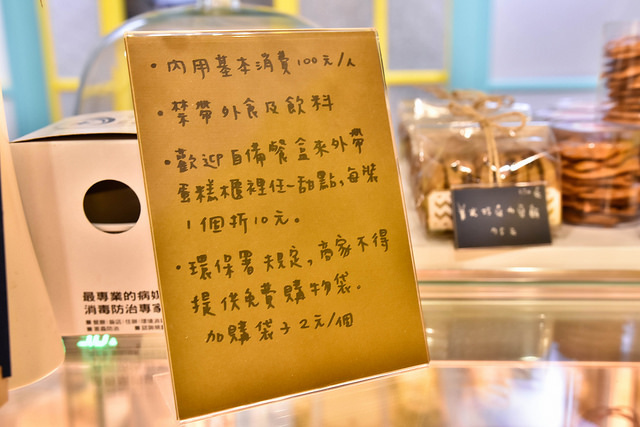 • 內用基本消費100元/人
• 禁帶外食及飲料
• 歡迎自備餐盒來外帶
蛋糕櫃裡任一甜點,每裝
1個折10元。
• 環保署規定,商家不得
提供免費購物袋。
加購袋子2元/個
最專業的病媒
消毒防治專家